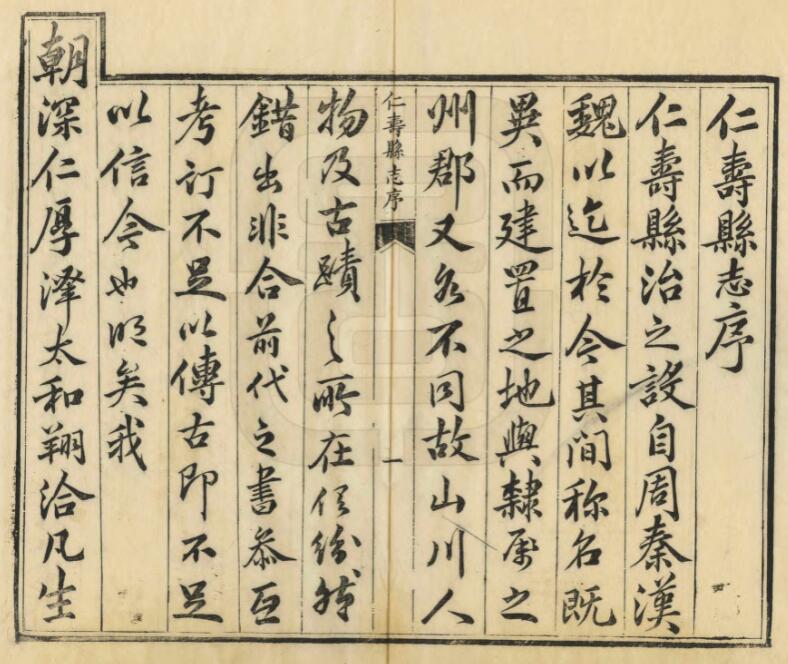 仁壽縣志序
仁壽縣治之設自周秦漢
魏以迄於今其間称名既
異而建置之地與隸屬之
州郡又各不同故山川人
仁壽縣志序 一
物及古蹟之所在紛
錯出非合前代之書叅互
考訂不足以傳古即不足
以信今也明矣我
朝深仁厚澤太和翔洽凡生